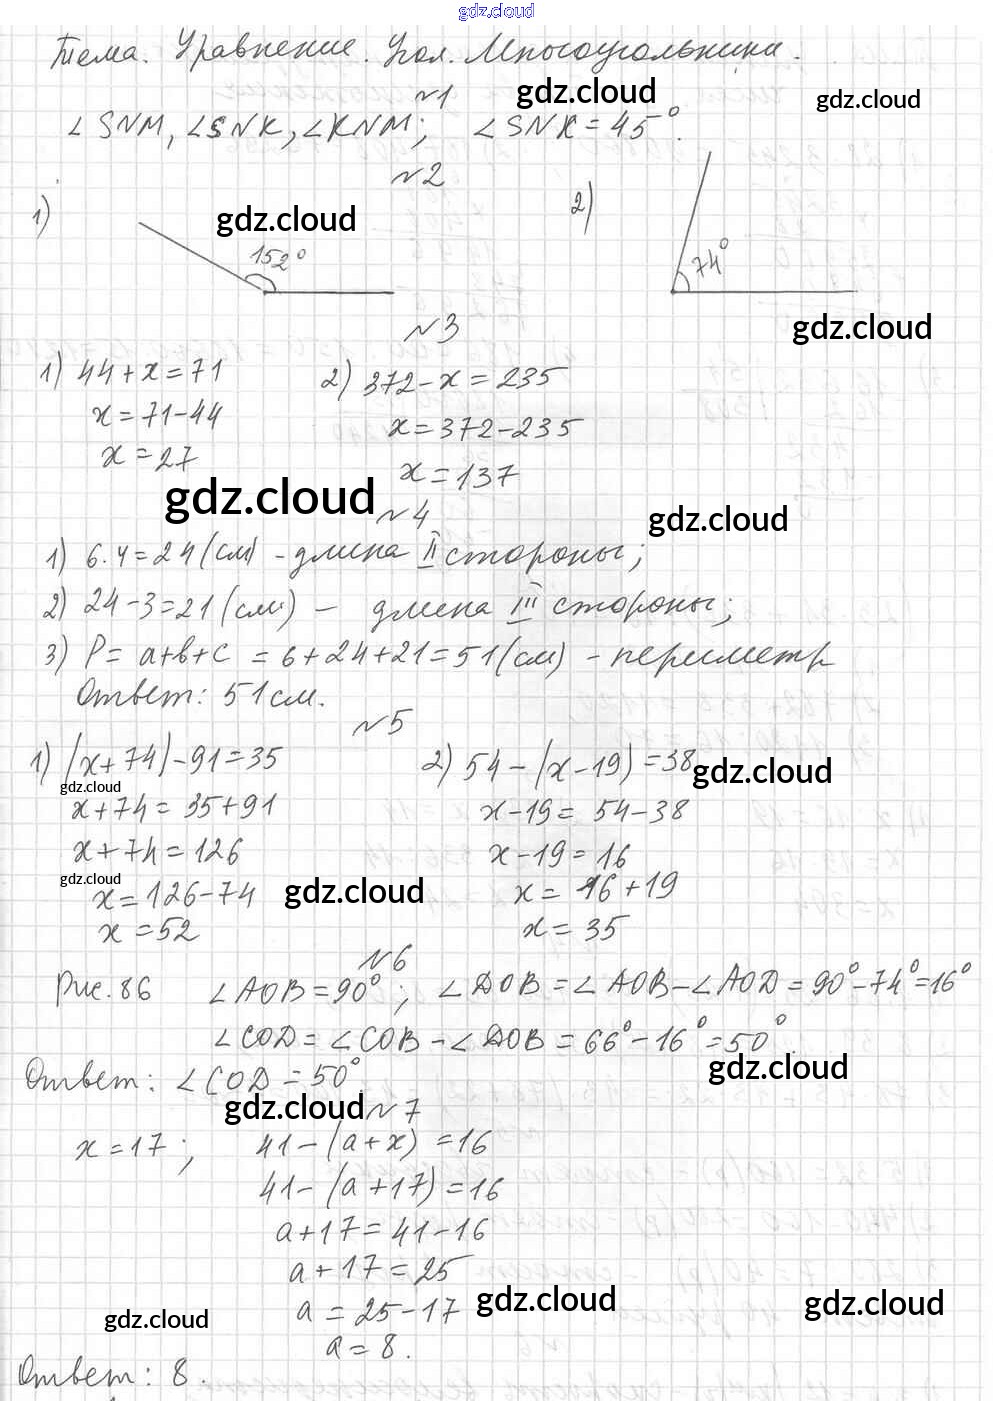 gdz.cloud
Тема. Уравнение. Угол. Многоугольники.
№1
gdz.cloud
gdz.cloud
∠SNM, ∠SNK, ∠KNM; ∠SNK = 45°.
№2
1)
2)
gdz.cloud
152°
74°
gdz.cloud
№3
1) 44 + x = 71
x = 71 - 44
x = 27
2) 372 - x = 235
x = 372 - 235
x = 137
gdz.cloud
gdz.cloud
№4
1) 6·4 = 24 (см) - длина II стороны;
2) 24 - 3 = 21 (см) - длина III стороны;
3) P = a + b + c = 6 + 24 + 21 = 51 (см) - периметр
Ответ: 51 см.
№5
1) (x + 74) - 91 = 35
gdz.cloud
x + 74 = 35 + 91
x + 74 = 126
gdz.cloud
x = 126 - 74
x = 52
gdz.cloud
2) 54 - (x - 19) = 38
gdz.cloud
x - 19 = 54 - 38
x - 19 = 16
x = 16 + 19
x = 35
№6
Рис. 86 ∠AOB = 90°; ∠DOB = ∠AOB - ∠AOD = 90° - 74° = 16°
∠COD = ∠COB - ∠DOB = 66° - 16° = 50°.
Ответ: ∠COD = 50°
gdz.cloud
gdz.cloud
№7
x = 17; 41 - (a + x) = 16
41 - (a + 17) = 16
a + 17 = 41 - 16
a + 17 = 25
a = 25 - 17
gdz.cloud
gdz.cloud
gdz.cloud
a = 8.
Ответ: 8.